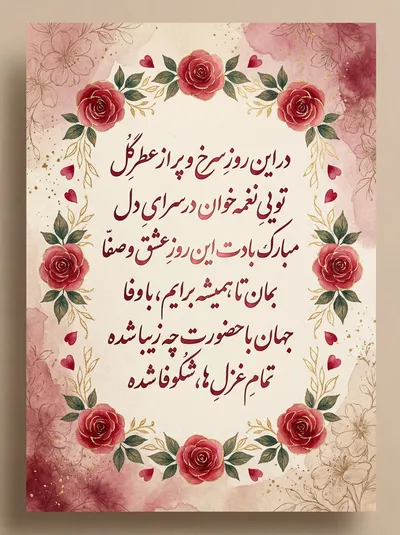 در این روزِ سرخ و پر از عطرِ گُل
تویی نغمه‌خوان در سرای دِل
مبارک بادت این روزِ عشق و صفّا
بمان تا همیشه برایم، باوفا
جهان با حضورت چه زیبا شده
تمامِ غزلِ ها، شکُوفا شده